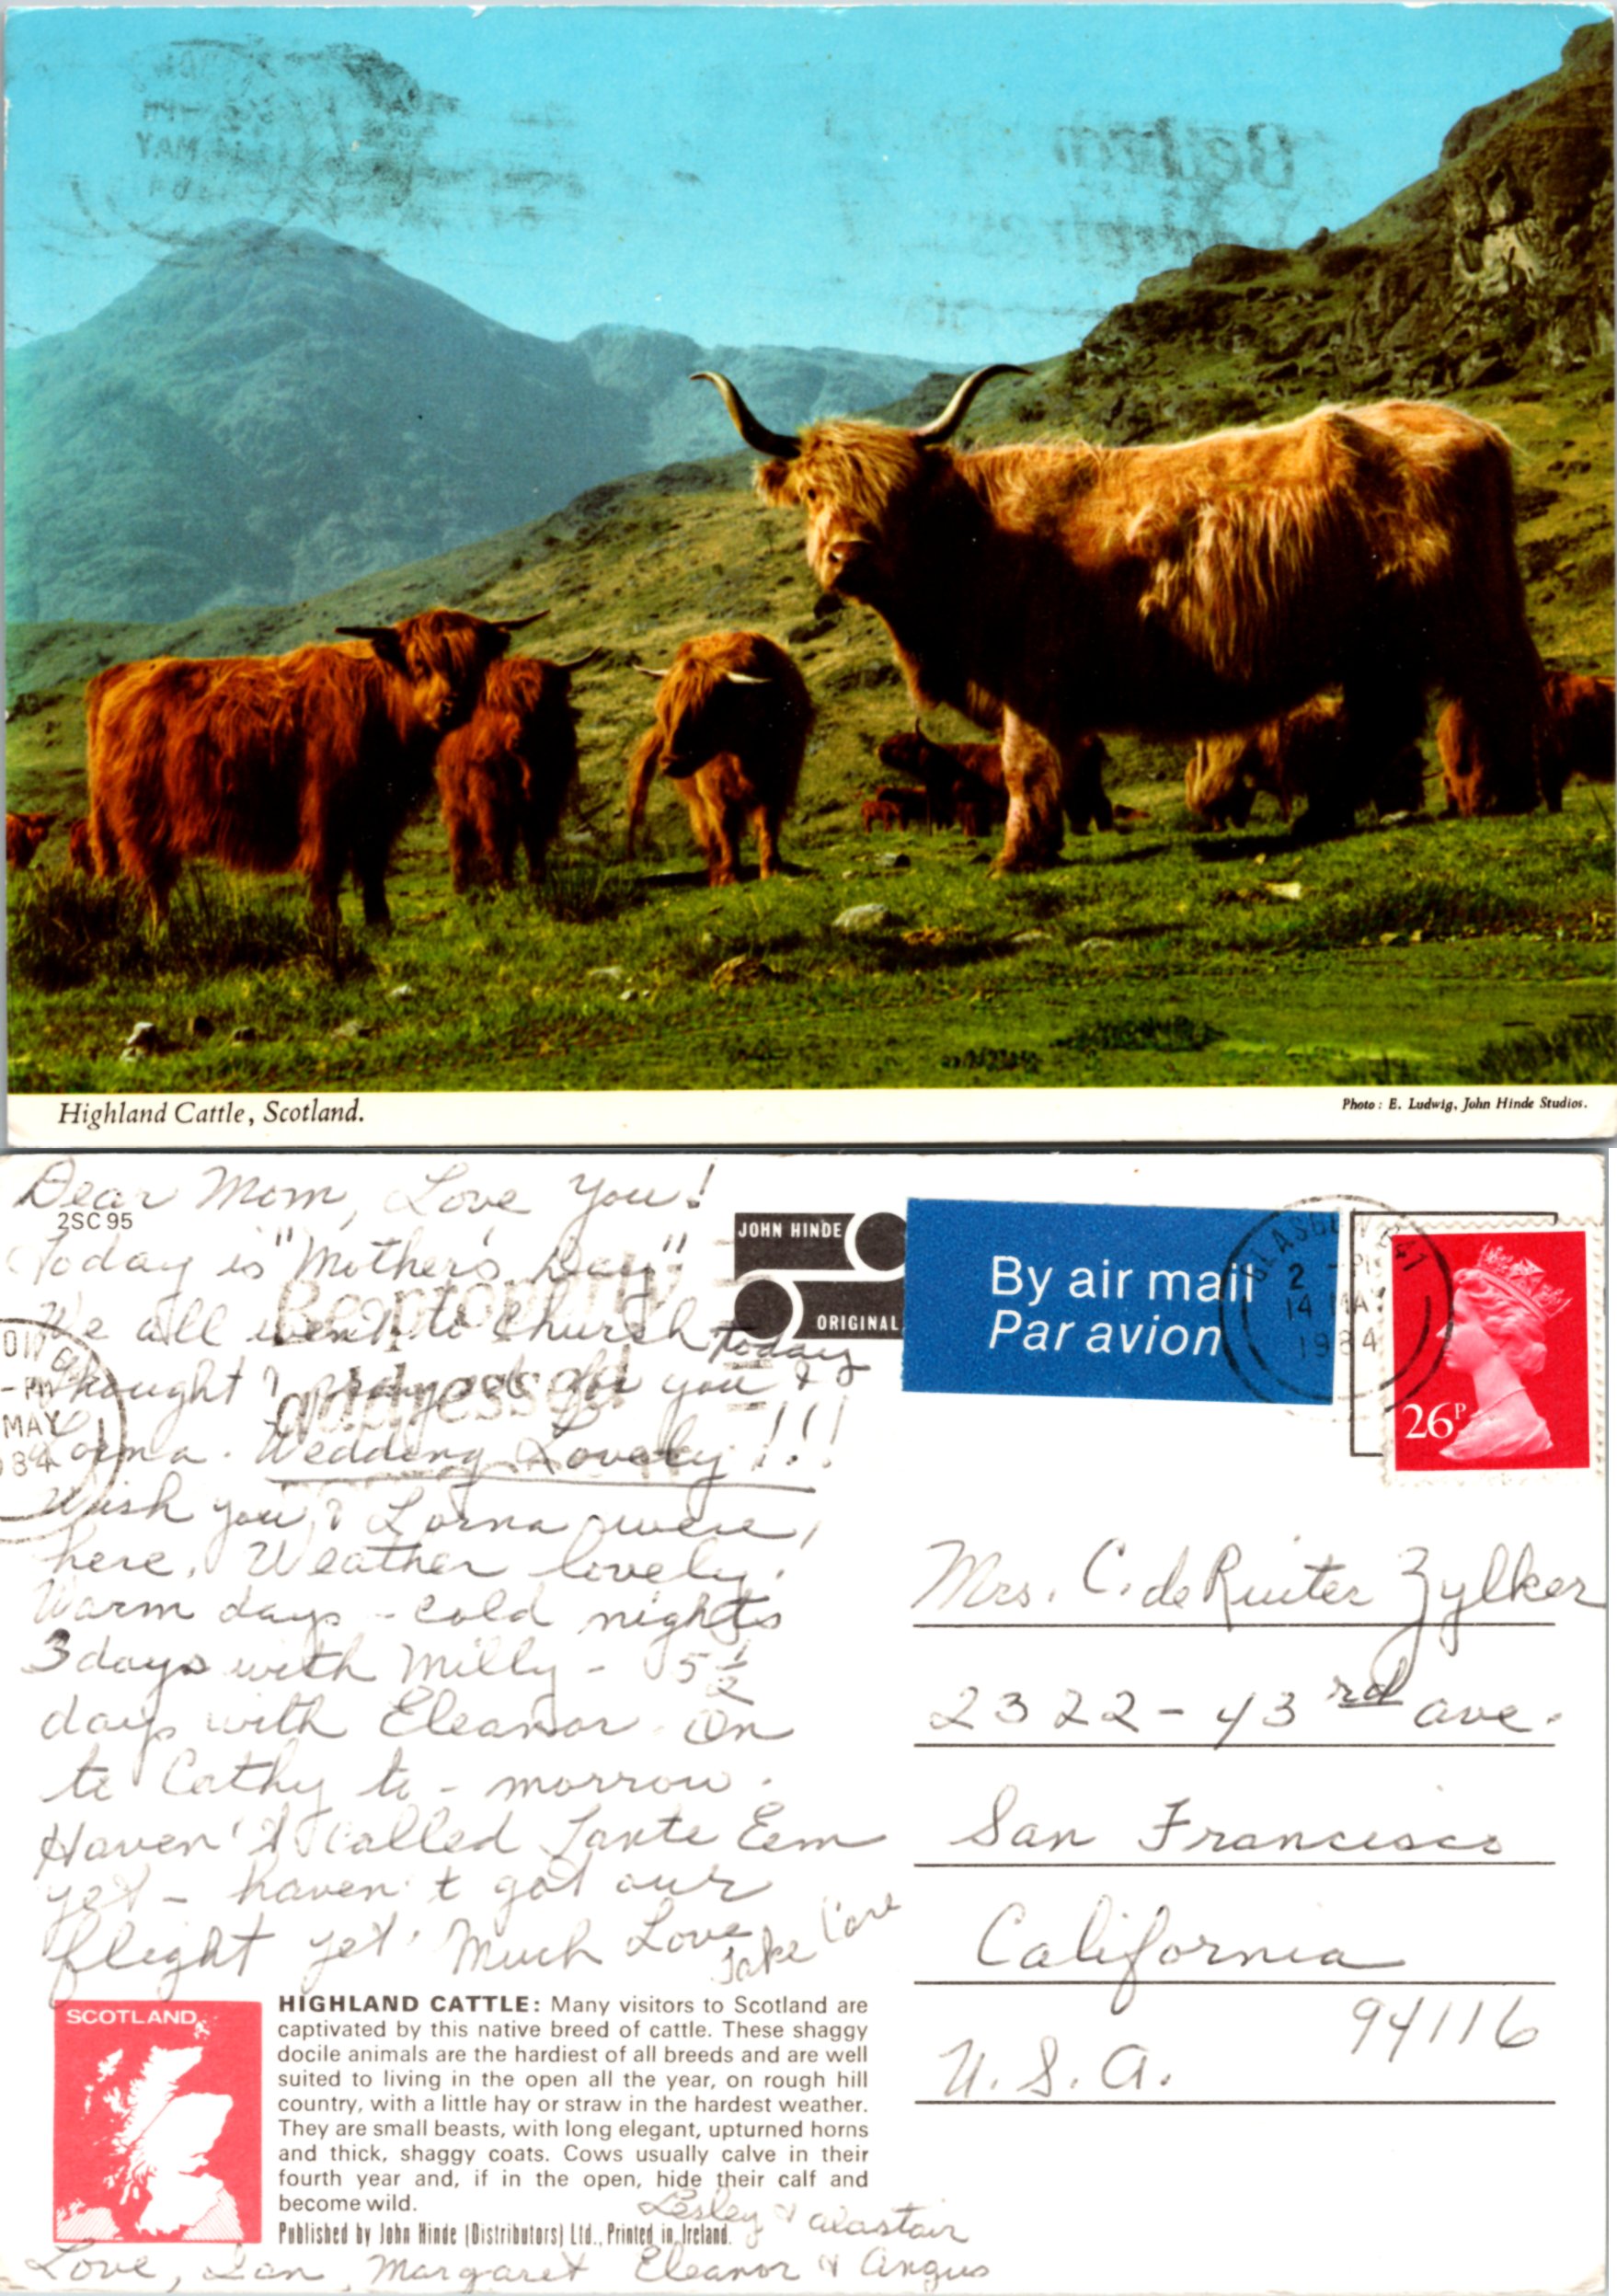 Highland Cattle, Scotland.
Photo: E. Ludwig, John Hinde Studios.
Dear Mom, Love you!
2SC95
Today is "Mother's Day"
We all went to Church today
thought & prayed for you &
Lorna. Wedding Lovely!!!
Wish you & Lorna were
here. Weather lovely.
Warm days - cold nights
3 days with Milly - 5 1/2
days with Eleanor. On
to Cathy to-morrow.
Haven't called Tante Eem
yet - haven't got our
flight yet. Much Love
Take Care
JOHN HINDE
ORIGINAL
By air mail
Par avion
2 - PM
14 MAY
1984
26P
- PM
MAY
Mrs. C. deRuiter Zylker
2322-43rd ave.
San Francisco
California
94116
U.S.A.
SCOTLAND
HIGHLAND CATTLE: Many visitors to Scotland are
captivated by this native breed of cattle. These shaggy
docile animals are the hardiest of all breeds and are well
suited to living in the open all the year, on rough hill
country, with a little hay or straw in the hardest weather.
They are small beasts, with long elegant, upturned horns
and thick, shaggy coats. Cows usually calve in their
fourth year and, if in the open, hide their calf and
become wild.
Published by John Hinde (Distributors) Ltd., Printed in Ireland.
Lesley & Alastair
Love, Ian, Margaret Eleanor & Angus